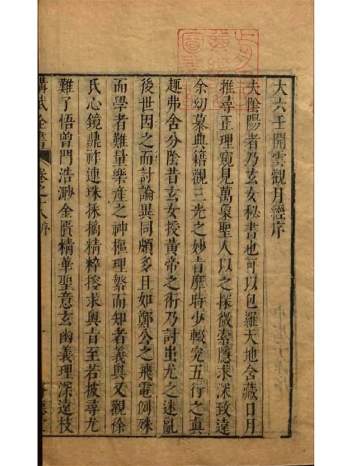 大六壬開雲觀月經序
夫陰陽者乃玄女秘書也可以包羅天地含藏日月
推尋正理窺見萬象聖人以之探微索隱求深致遠
余幼慕典籍觀三光之妙旨靡時少輟究五行之真
趣弗舍分陰昔玄女授黃帝之術乃討蚩尤之逆亂
後世因之而討論異同頗多且如鄭公之飛電例殊
而學者難量樂產之神樞理繁而知者義與又觀徐
氏心鏡龜祚連珠採摘精粹搜求奧旨至若披尋尤
難了悟曾門浩渺金匱精華聖意玄幽義理深遠枝
講武全書 卷之八序